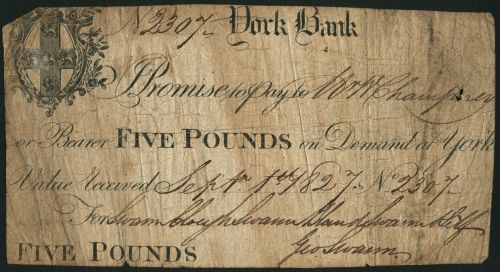 No. 2307 York Bank
I Promise to Pay to Wm Champney
or Bearer FIVE POUNDS on Demand at York
Value Received Septr. 1st 1827 No. 2307
For Swann Clough Swann Bland Swann &
Geo Swann.
FIVE POUNDS